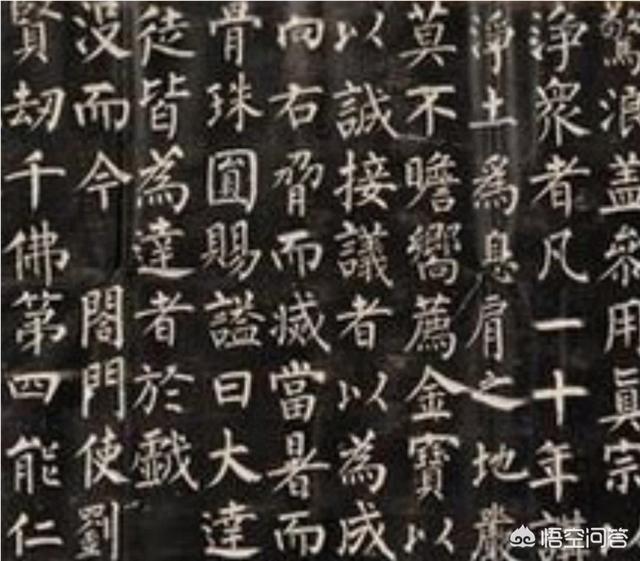 驚浪盖叅用眞宗
浄衆者凡一十年講
淨土爲息肩之地嚴
莫不瞻嚮薦金寶以
以誠接議者以為成
向右脅而滅當暑而
骨珠圓賜謚曰大達
徒皆為達者於戲
没而今 閤門使劉
賢劫千佛第四能仁
悟空问答